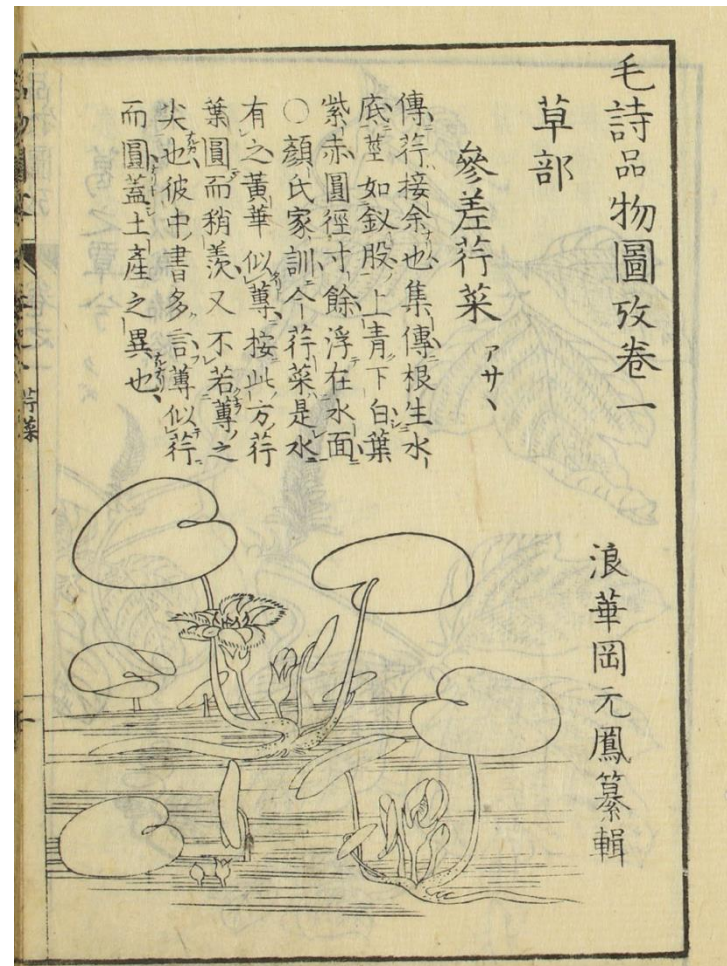 毛詩品物圖攷卷一
浪華岡元鳳纂輯
草部
參差荇菜 アサヽ
傳荇接余也集傳根生水
底莖如釵股上青下白葉
紫赤圓徑寸餘浮在水面
○顏氏家訓今荇菜是水
有之黃華似蓴按此方荇
葉圓而稍羨又不若蓴之
尖也彼中書多言蓴似荇
而圓蓋土產之異也